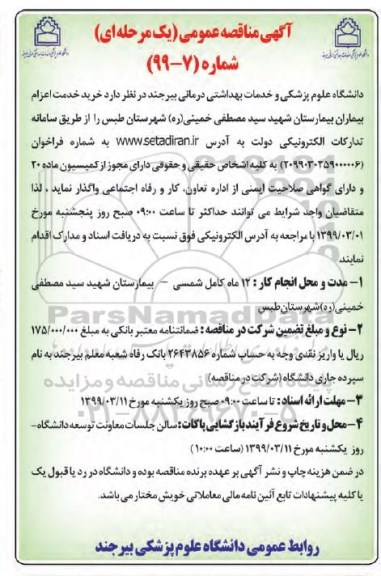 آگهی مناقصه عمومی (یک مرحله ای)
شماره (۷-۹۹)
دانشگاه علوم پزشکی و خدمات بهداشتی درمانی بیرجند در نظر دارد خرید خدمت اعزام
بیماران بیمارستان شهید سید مصطفی خمینی(ره) شهرستان طبس را از طریق سامانه
تدارکات الکترونیکی دولت به آدرس www.setadiran.ir به شماره فراخوان
(۲۰۹۹۰۳۰۲۵۹۰۰۰۰۰۶) به کلیه اشخاص حقیقی و حقوقی دارای مجوز از کمیسیون ماده ۲۰
و دارای گواهی صلاحیت ایمنی از اداره تعاون، کار و رفاه اجتماعی واگذار نماید ، لذا
متقاضیان واجد شرایط می توانند حداکثر تا ساعت ۰۹:۰۰ صبح روز پنجشنبه مورخ
۱۳۹۹/۰۳/۰۱ با مراجعه به آدرس الکترونیکی فوق نسبت به دریافت اسناد و مدارک اقدام
نمایند.
۱- مدت و محل انجام کار : ۱۲ ماه کامل شمسی - بیمارستان شهید سید مصطفی
خمینی(ره)شهرستان طبس
۲- نوع و مبلغ تضمین شرکت در مناقصه : ضمانتنامه معتبر بانکی به مبلغ ۱۷۵/۰۰۰/۰۰۰
ریال یا واریز نقدی وجه به حساب شماره ۲۶۴۳۸۵۶ بانک رفاه شعبه معلم بیرجند به نام
سپرده جاری دانشگاه (شرکت در مناقصه)
۳- مهلت ارائه اسناد : تا ساعت ۰۹:۰۰ صبح روز یکشنبه مورخ ۱۳۹۹/۰۳/۱۱
۴- محل و تاریخ شروع فرآیند بازگشایی پاکات: سالن جلسات معاونت توسعه دانشگاه-
روز یکشنبه مورخ ۱۳۹۹/۰۳/۱۱ (ساعت ۱۰:۰۰)
در ضمن هزینه چاپ و نشر آگهی بر عهده برنده مناقصه بوده و دانشگاه در رد یا قبول یک
یا کلیه پیشنهادات تابع آئین نامه مالی معاملاتی خویش مختار می باشد.
روابط عمومی دانشگاه علوم پزشکی بیرجند
ParsNamadData
پایگاه اطلاع رسانی مناقصه و مزایده